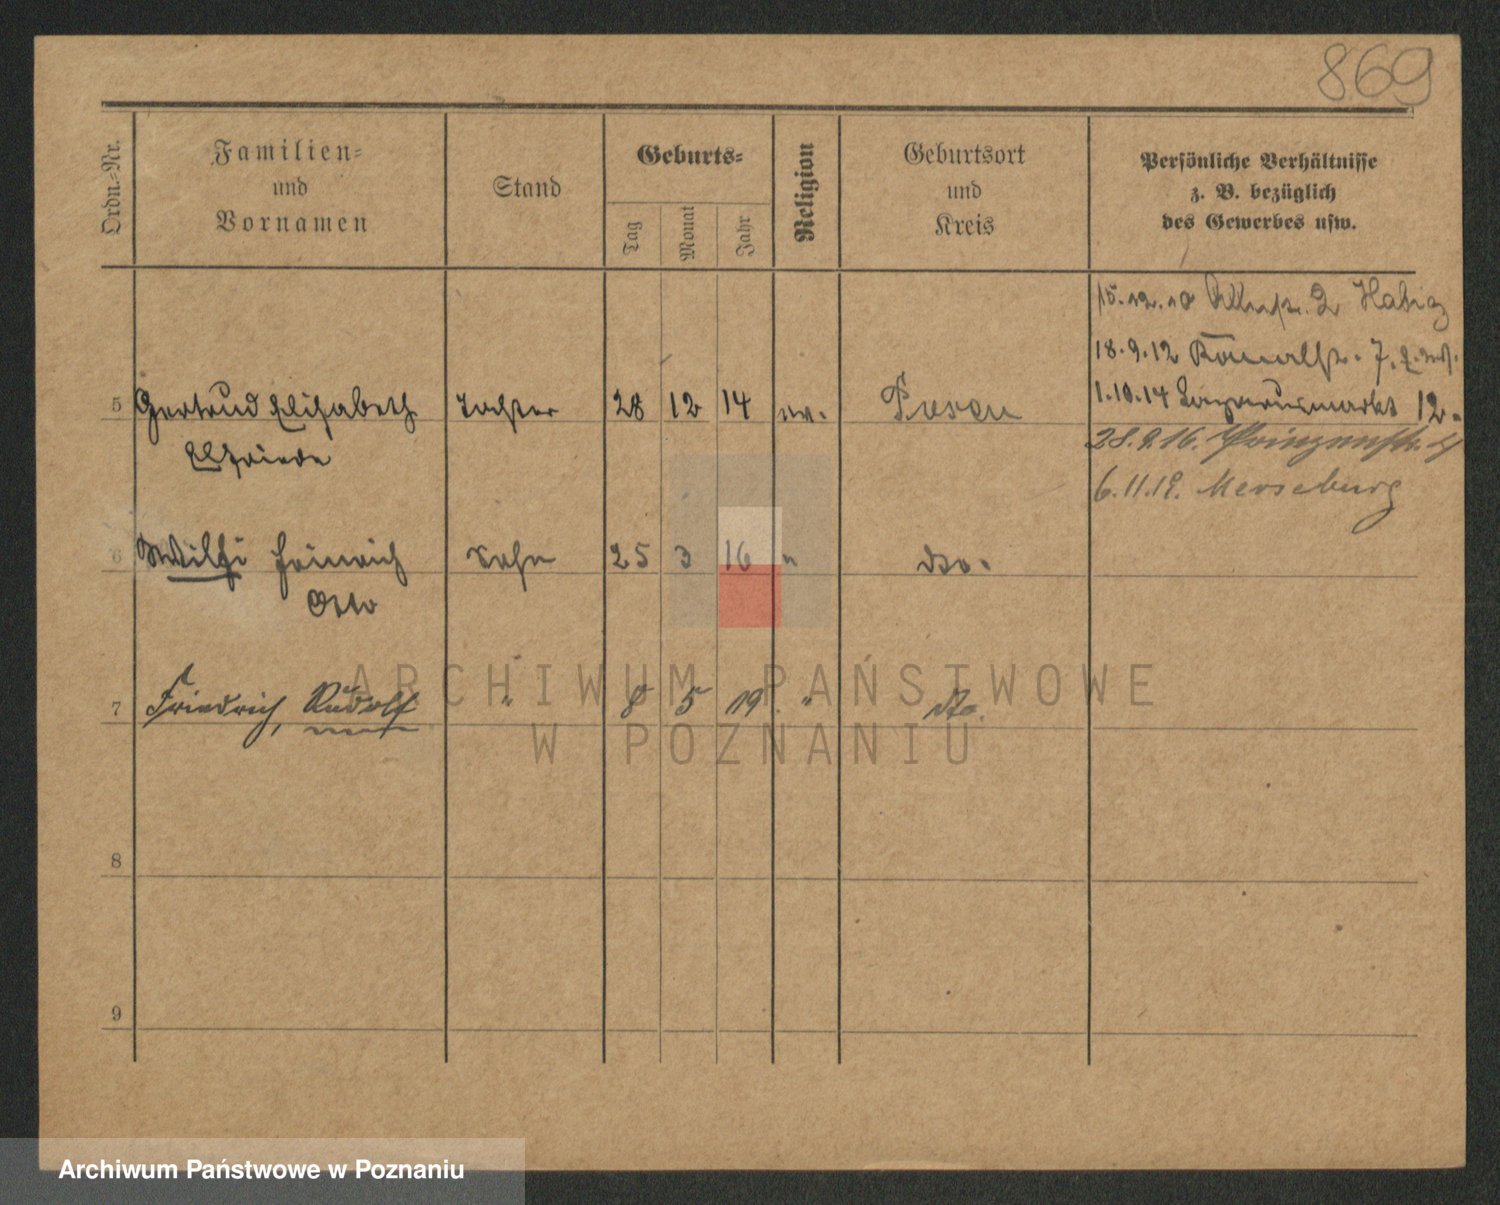 869
Ordn.-Nr.
Familien-
und
Vornamen
Stand
Geburts-
Tag
Monat
Jahr
Religion
Geburtsort
und
Kreis
Persönliche Verhältnisse
z. B. bezüglich
des Gewerbes usw.
15.12.10 2 Habig
18.9.12 7.
5 Gertrud Elisabeth Tochter 28 12 14 ev. Posen 1.10.14 12.
Elfriede
28.9.16. Prinzenstr.
6.11.19. Merseburg
6 Willi Heinrich Sohn 25 3 16 " dto.
Otto
7 Friedrich, Rudolf " 8 5 19 " dto.
8
9
ARCHIWUM PAŃSTWOWE
W POZNANIU
Archiwum Państwowe w Poznaniu